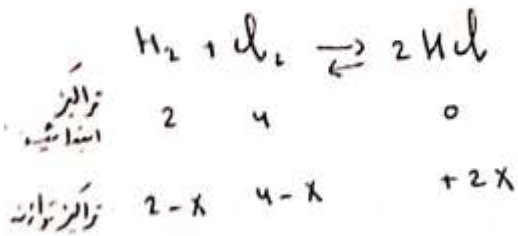 H₂ + Cl₂ ⇌ 2 HCl
تراكيز ابتدائية 2 4 0
تراكيز توازن 2-x 4-x +2x